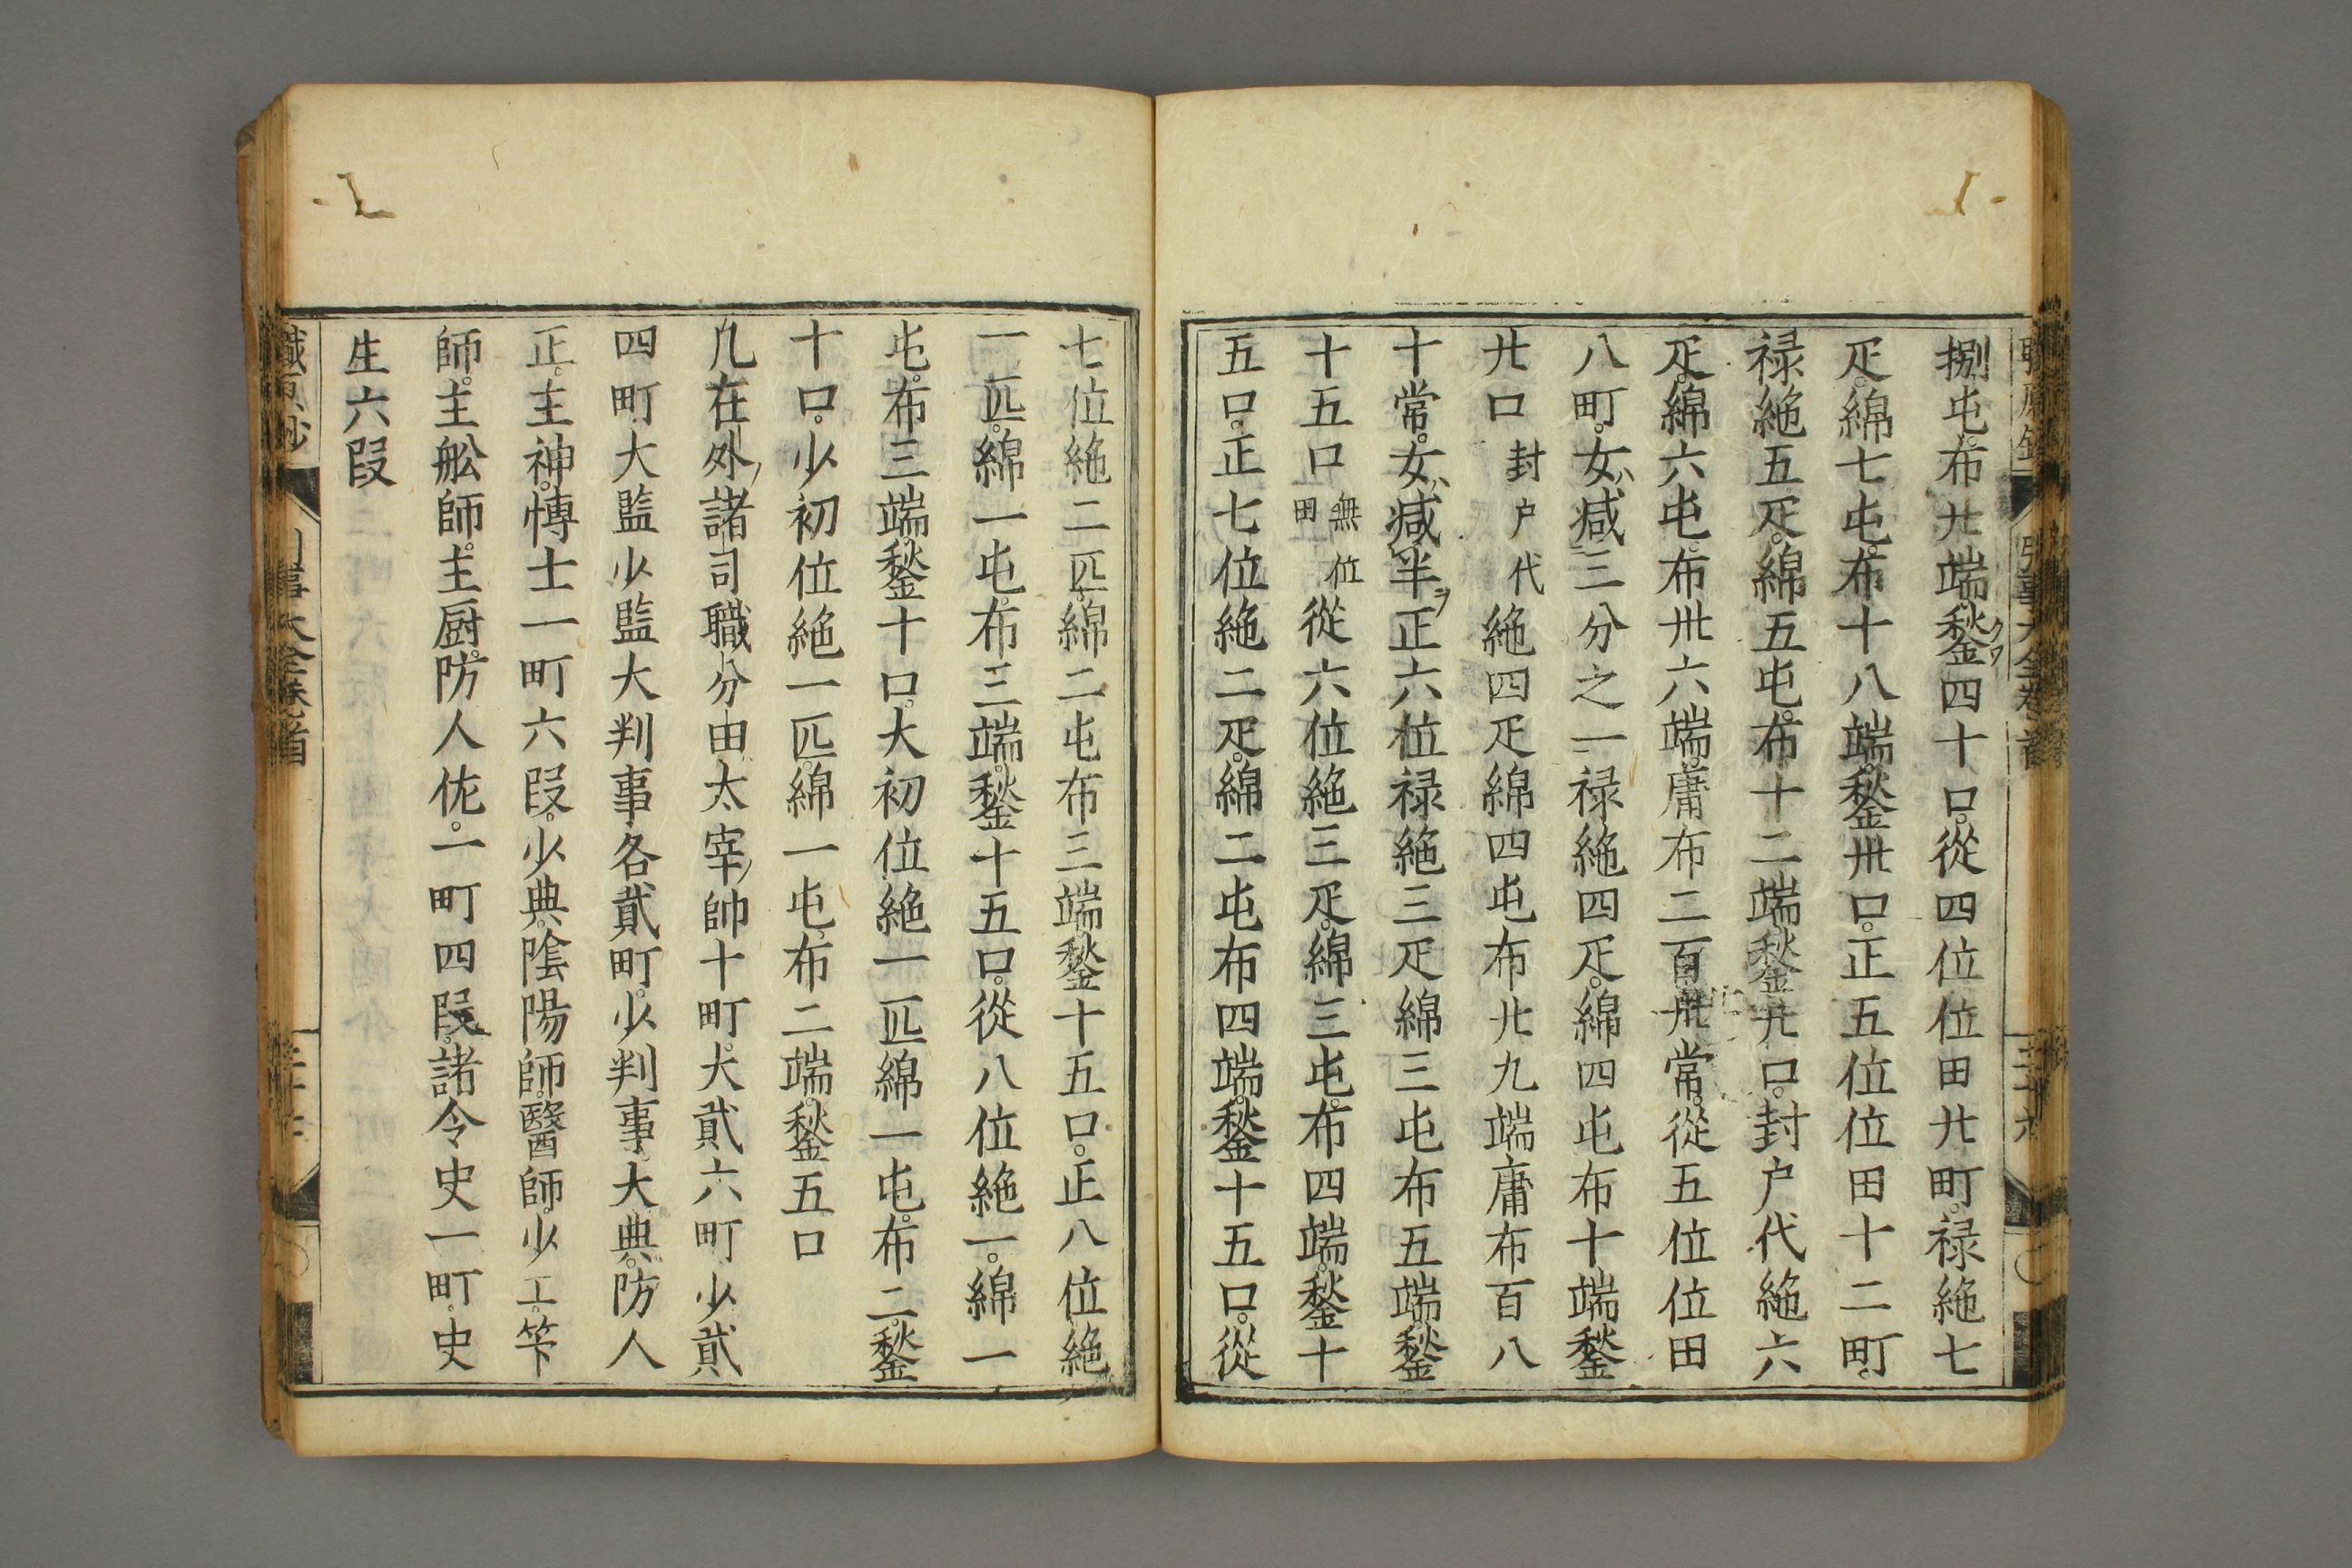 捌屯。布廾端鍫クワ四十口。從四位位田廾町。禄絁七
疋。綿七屯。布十八端。鍫卅口。正五位位田十二町。
禄絁五疋。綿五屯。布十二端鍫廾口。封户代絁六
疋。綿六屯。布卅六端。庸布二百卅常。從五位位田
八町。女ハ减三分之一禄絁四疋。綿四屯布十端鍫
廾口封户代絁四疋綿四屯布廾九端庸布百八
十常。女ハ减半ヲ正六位禄絁三疋綿三屯布五端。鍫
十五口無位田從六位絁三疋。綿三屯。布四端。鍫十
五口。正七位絁二疋。綿二屯布四端。鍫十五口。從
七位絁二匹。綿二屯布三端。鍫十五口。正八位絁
一匹。綿一屯。布三端。鍫十五口。從八位絁一。綿一
屯。布三端。鍫十口。大初位絁一匹綿一屯。布二。鍫
十口。少初位絁一匹。綿一屯。布二端。鍫五口
凡在外ノ諸司職分由太宰ノ帥十町。大貳六町少貳
四町大監少監大判事各貳町。少判事。大典。防人
正。主神。愽士一町六段。少典。陰陽師。醫師。少工。竿
師。主舩師。主厨。防人佐。一町四段。諸令史一町。史
生六段
職原抄 引事大全卷首